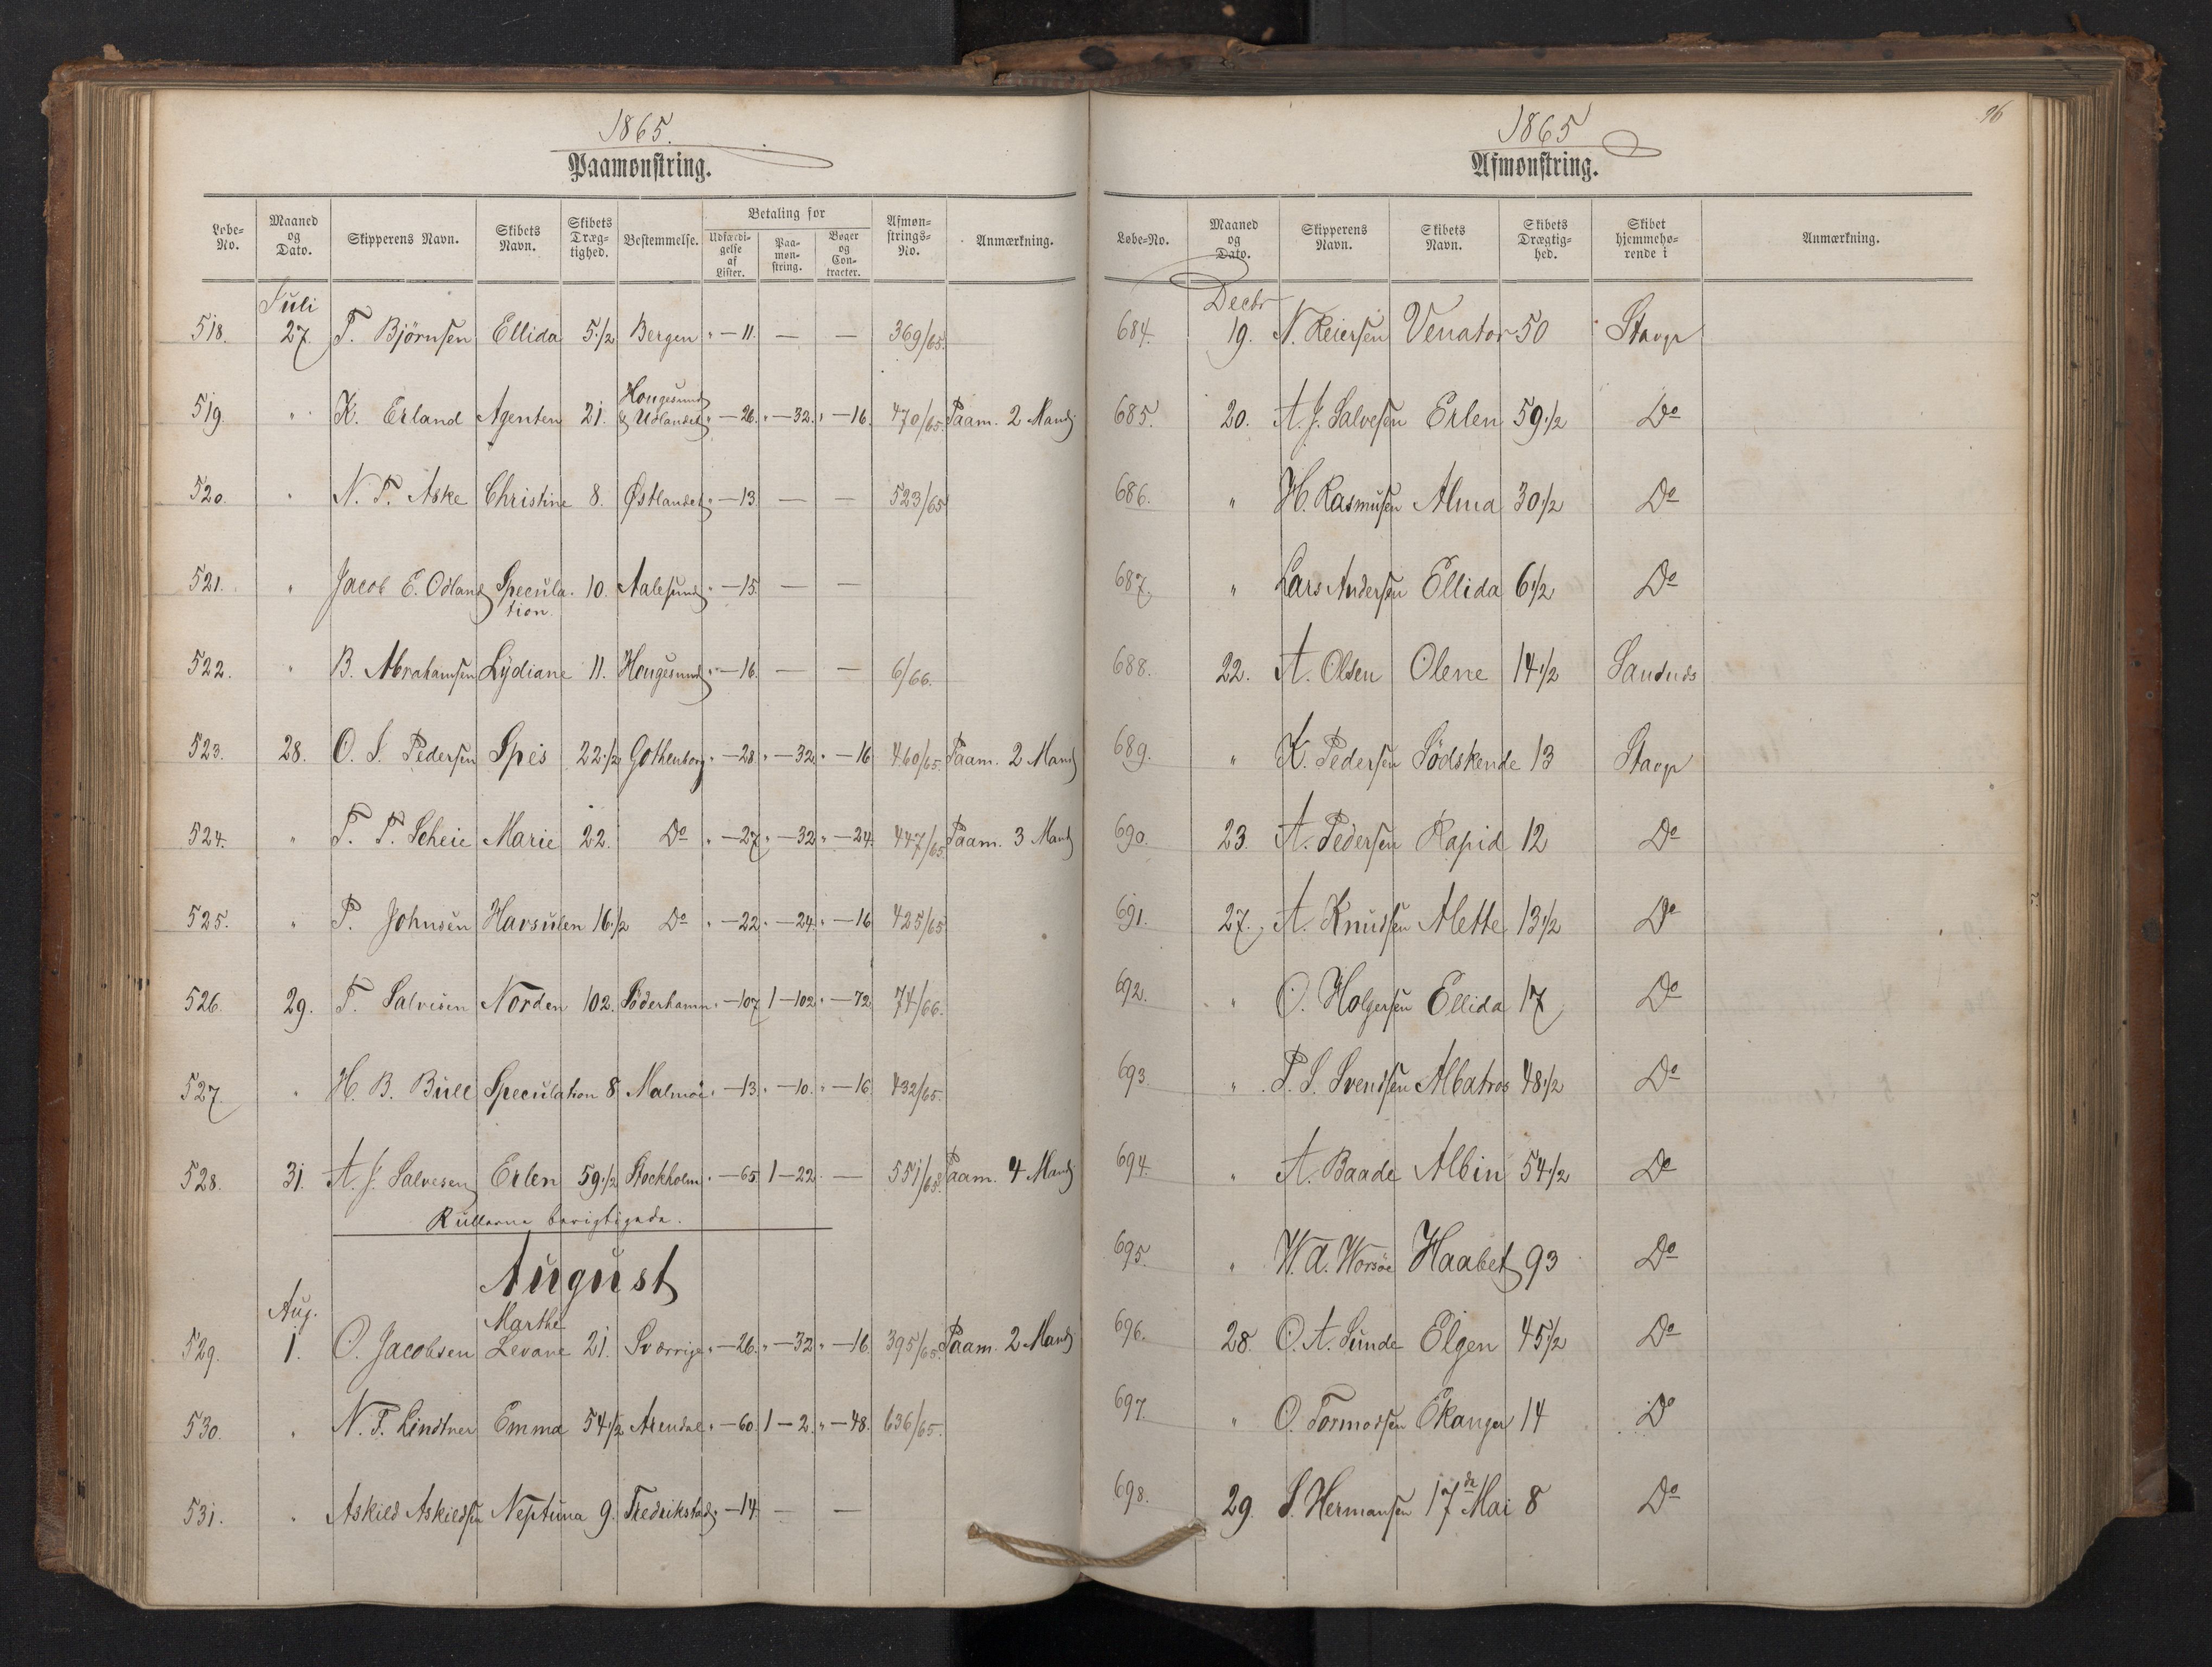 1865.
Paamønstring.
Løbe-No. | Maaned og Dato. | Skipperens Navn. | Skibets Navn. | Skibets Dræg-tighed. | Bestemmelse. | Betaling for | Udfærdi-gelse af Lister. | Paa-møn-string. | Bøger og Con-tracter. | Afmøn-strings-No. | Anmærkning.
Juli
518. 27. T. Bjørnsen Ellida 5 1/2 Bergen " — 11. — — 369/65.
519. " K. Erland Agenten 21. Hougesund & Udlandet " — 26. " — 32. " — 16. 470/65. Paam. 2 Mand
520. " N. T. Aske Christine 8. Østlandet " — 13. — — 523/65
521. " Jacob E. Odland Specula-tion. 10. Aalesund " — 15. — —
522. " B. Abrahamsen Lydiane 11. Hougesund " — 16. — — 6/66.
523. 28. O. S. Pedersen Spes 22 1/2 Gothenborg " — 28. " — 32. " — 16 460/65. Paam. 2 Mand
524. " T. T. Scheie Marie 22. Do " — 27. " — 32. " — 24. 447/65 Paam. 3 Mand
525. " P. Johnsen Havsulen 16 1/2 Do " — 22. " — 24. " — 16 425/65
526. 29. T. Salvesen Norden 102. Söderhamn " — 107 1 — 102. " — 72. 74/66.
527. " H. B. Bull Speculation 8 Malmöe " — 13. " — 10. " — 16. 432/65.
528. 31. A. J. Salvesen Erlen 59 1/2 Stockholm " — 65. 1 — 22. — 551/65. Paam. 4 Mand
Rullerne berigtigede.
August
Aug.
529. 1. O. Jacobsen Marthe Levane 21. Sverrige " — 26. " — 32 " — 16. 395/65. Paam. 2 Mand
530. " N. T. Lindtner Emma 54 1/2 Arendal " — 60. 1 — 2. " — 48. 636/65.
531. " Askild Askildsen Neptuna 9. Fredrikstad " — 14. — —
96
1865
Afmønstring.
Løbe-No. | Maaned og Dato. | Skipperens Navn. | Skibets Navn. | Skibets Drægtig-hed. | Skibet hjemmehø-rende i | Anmærkning.
Decbr
684. 19. N. Reiersen Venator 50 Stavgr
685. 20. A. J. Salvesen Erlen 59 1/2 Do
686. " H. Rasmusen Alma 30 1/2 Do
687. " Lars Andersen Ellida 6 1/2 Do
688. 22. A. Olsen Olene 14 1/2 Sandnds
689. " K. Pedersen Södskende 13 Stavgr
690. 23. A. Pedersen Rapid 12 Do
691. 27. A. Knudsen Alette 13 1/2 Do
692. " O. Holgersen Ellida 17 Do
693. " P. S. Svendsen Albatros 48 1/2 Do
694. " A. Baade Albin 54 1/2 Do
695. " W. A. Worsöe Haabet 93 Do
696. 28. O. A. Sunde Elgen 45 1/2 Do
697. " O. Tormodsen Ekanger 14 Do
698. 29. S. Hermansen 17de Mai 8 Do